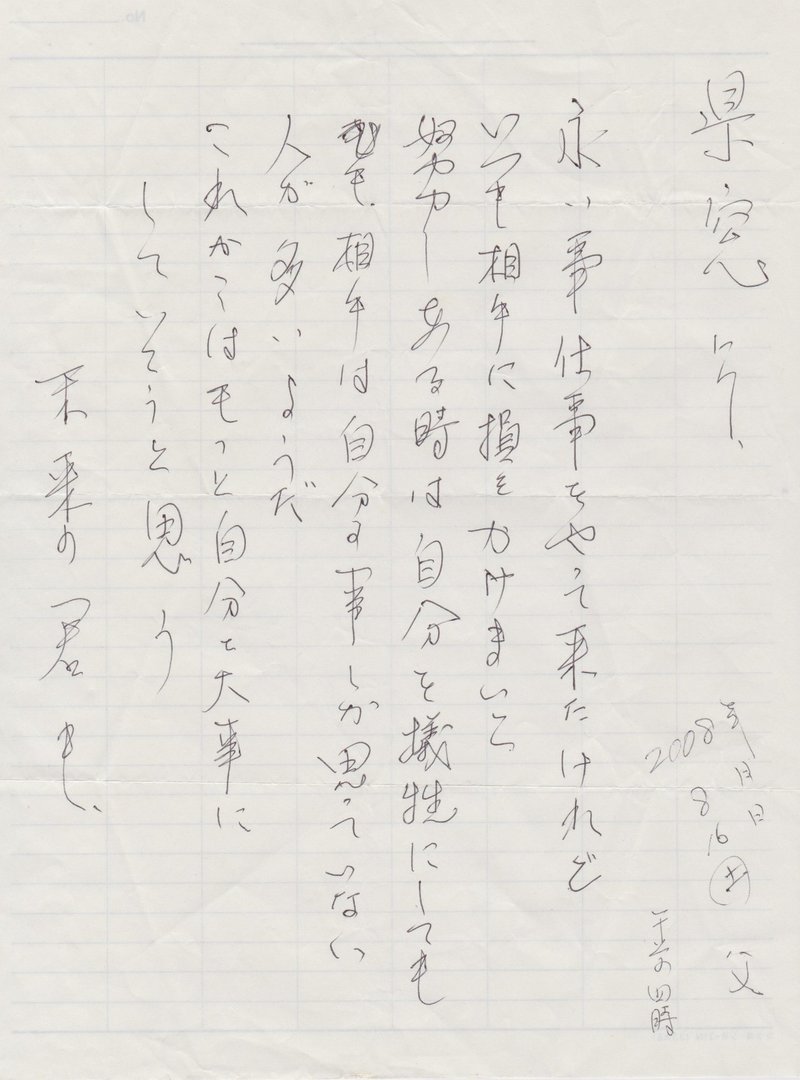 永い事仕事をやって来たけれど
いつも相手に損をかけまいと
努力しある時は自分を犠牲にしても
も、相手は自分の事しか思っていない
人が多いようだ
これからはもっと自分を大事に
していこうと思う
未来の君も、
2008
8 16 土
父
四時
No.